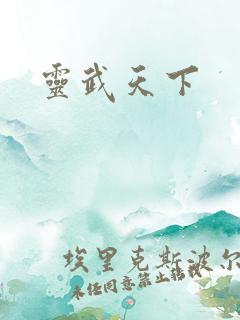 靈武天下
埃里克斯波尔
未经同意禁止转载